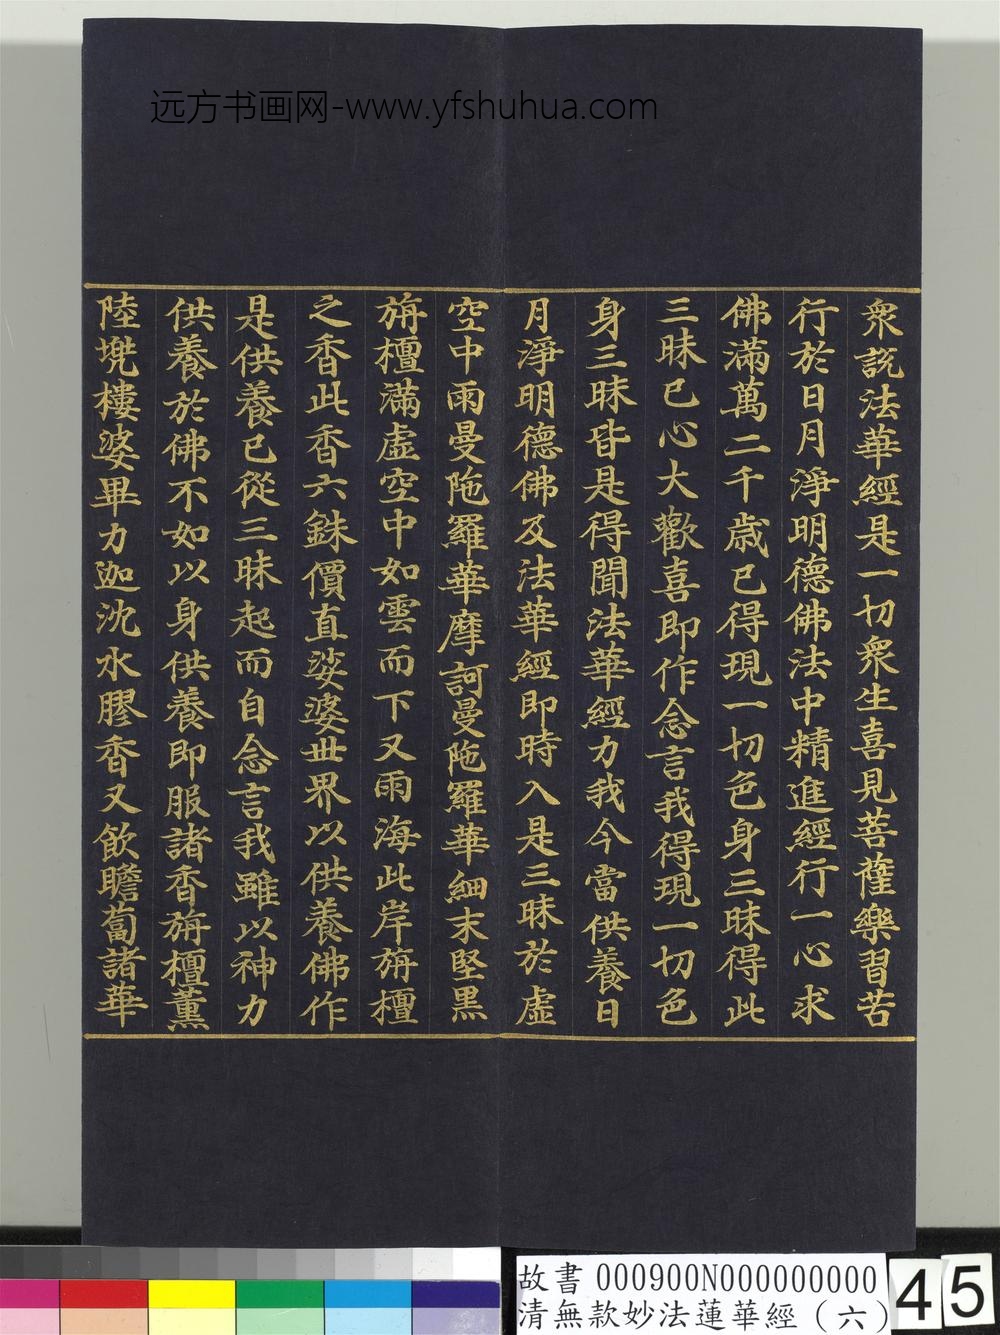 远方书画网-www.yfshuhua.com
衆說法華經是一切衆生喜見菩薩樂習苦
行於日月淨明德佛法中精進經行一心求
佛滿萬二千歲已得現一切色身三昧得此
三昧已心大歡喜即作念言我得現一切色
身三昧皆是得聞法華經力我今當供養日
月淨明德佛及法華經即時入是三昧於虛
空中雨曼陁羅華摩訶曼陁羅華細末堅黑
旃檀滿虛空中如雲而下又雨海此岸旃檀
之香此香六銖價直娑婆世界以供養佛作
是供養已從三昧起而自念言我雖以神力
供養於佛不如以身供養即服諸香旃檀薰
陸兜樓婆畢力迦沈水膠香又飲瞻蔔諸華
故書 000900N000000000
清無款妙法蓮華經（六）
45